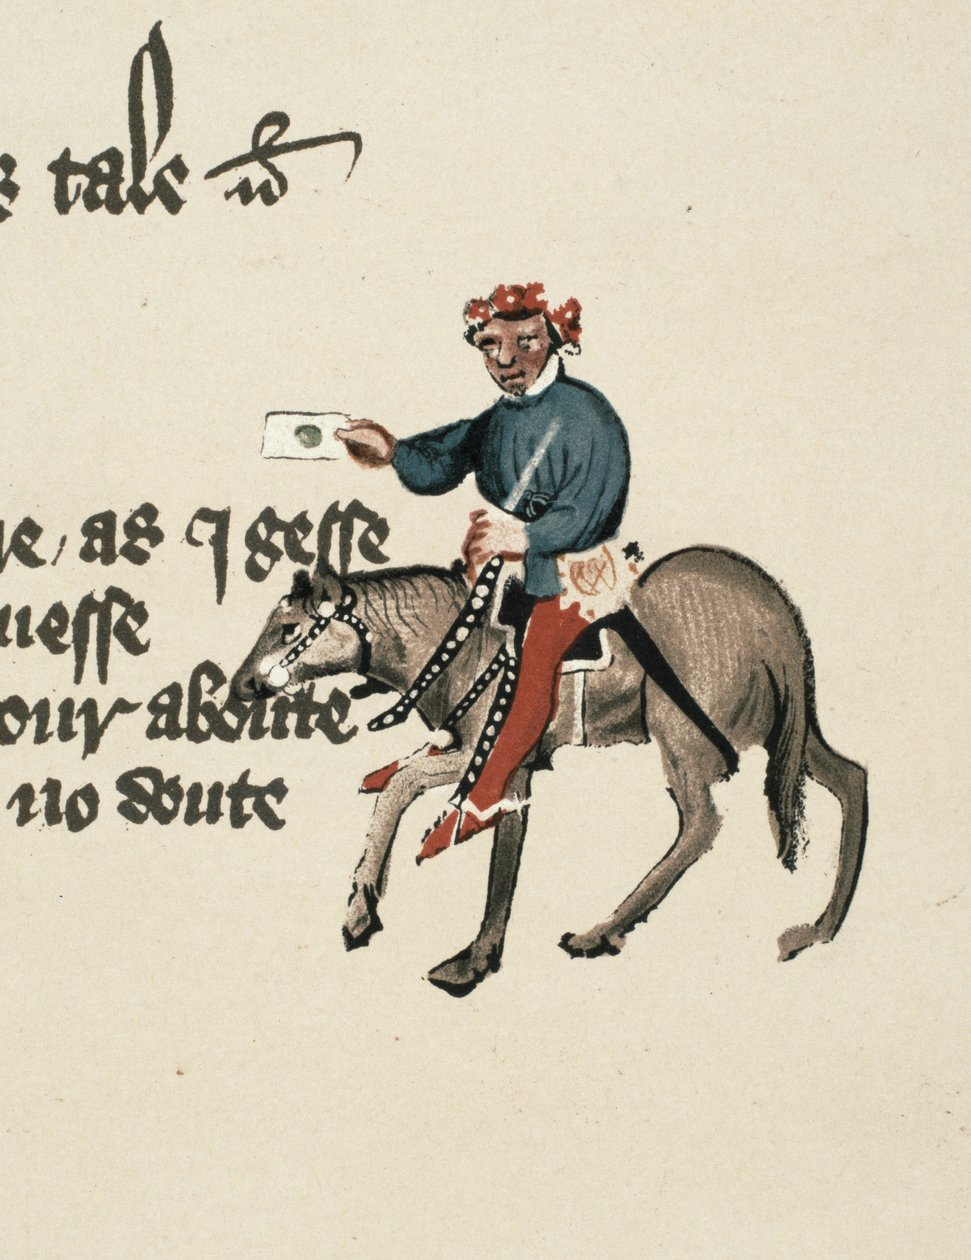 tale
as I gesse
nesse
our aboute
no doute